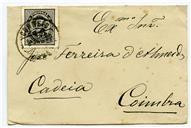 Ex.mo Snr.
José Ferreira d'Almeida
Cadeia
Coimbra